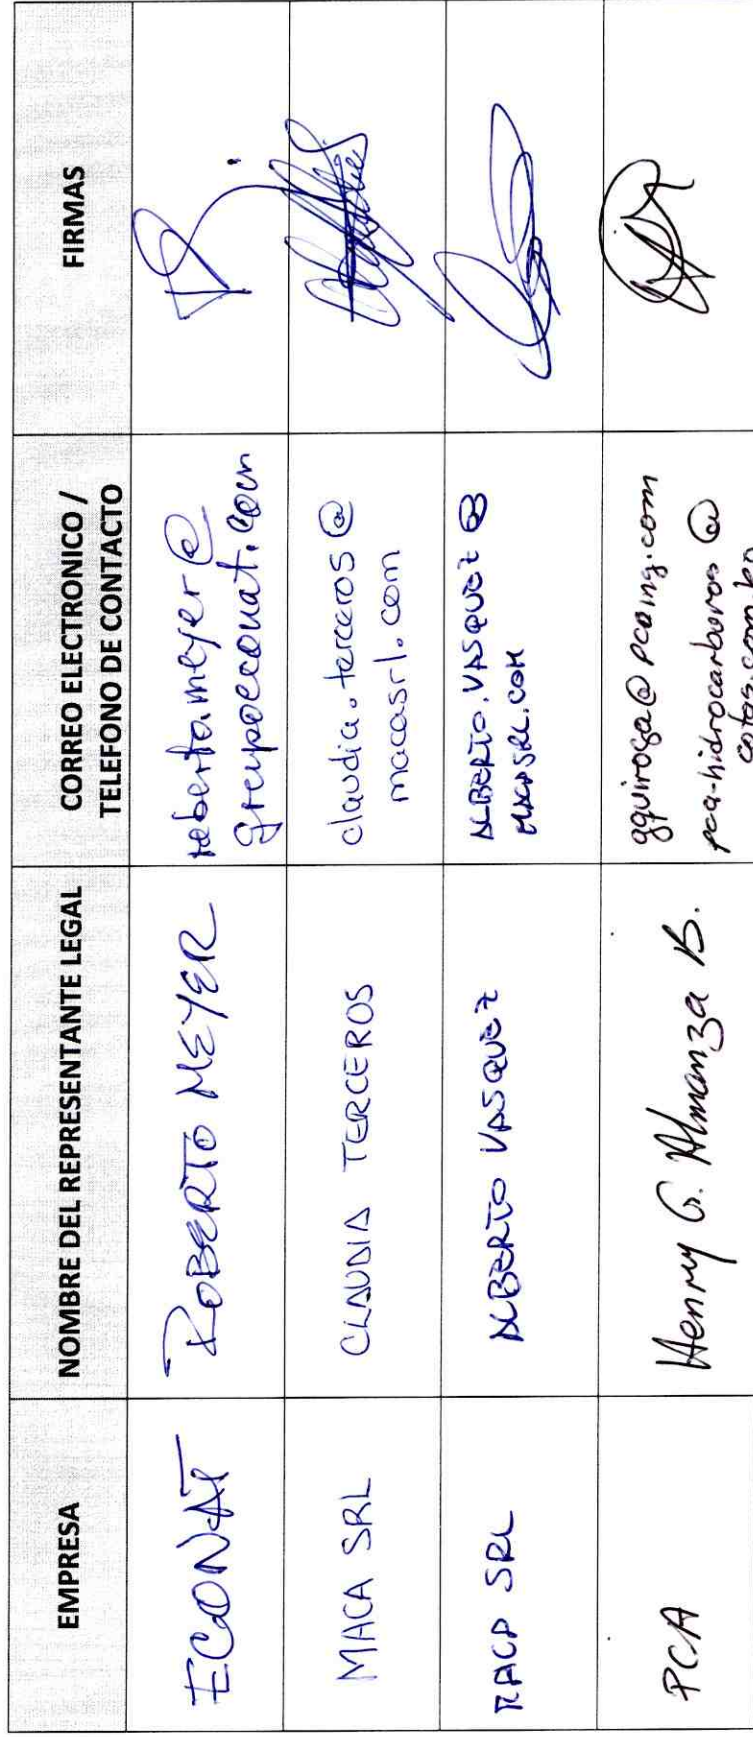 EMPRESA
NOMBRE DEL REPRESENTANTE LEGAL
CORREO ELECTRONICO /
TELEFONO DE CONTACTO
FIRMAS
ECONAT
ROBERTO MEYER
grupoeconat.com
MACA SRL
CLAUDIA TERCEROS
claudia.terceros@
macasrl.com
SRL
ALBERTO VASQUEZ
ALBERTO.VASQUEZ@
MACASRL.COM
PCA
Henry G. Almanza B.
gquiroga@pcaing.com
pca-hidrocarburos@
cotas.com.bo